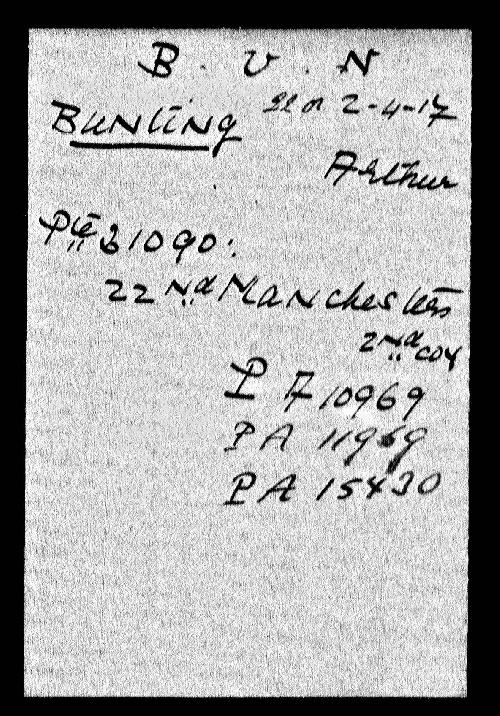 B . U . N
BUNTING 2-4-17
Arthur
Pte 31090.
22 Nd Manchesters
2Nd coy
P A 10969
PA 11969
PA 15430